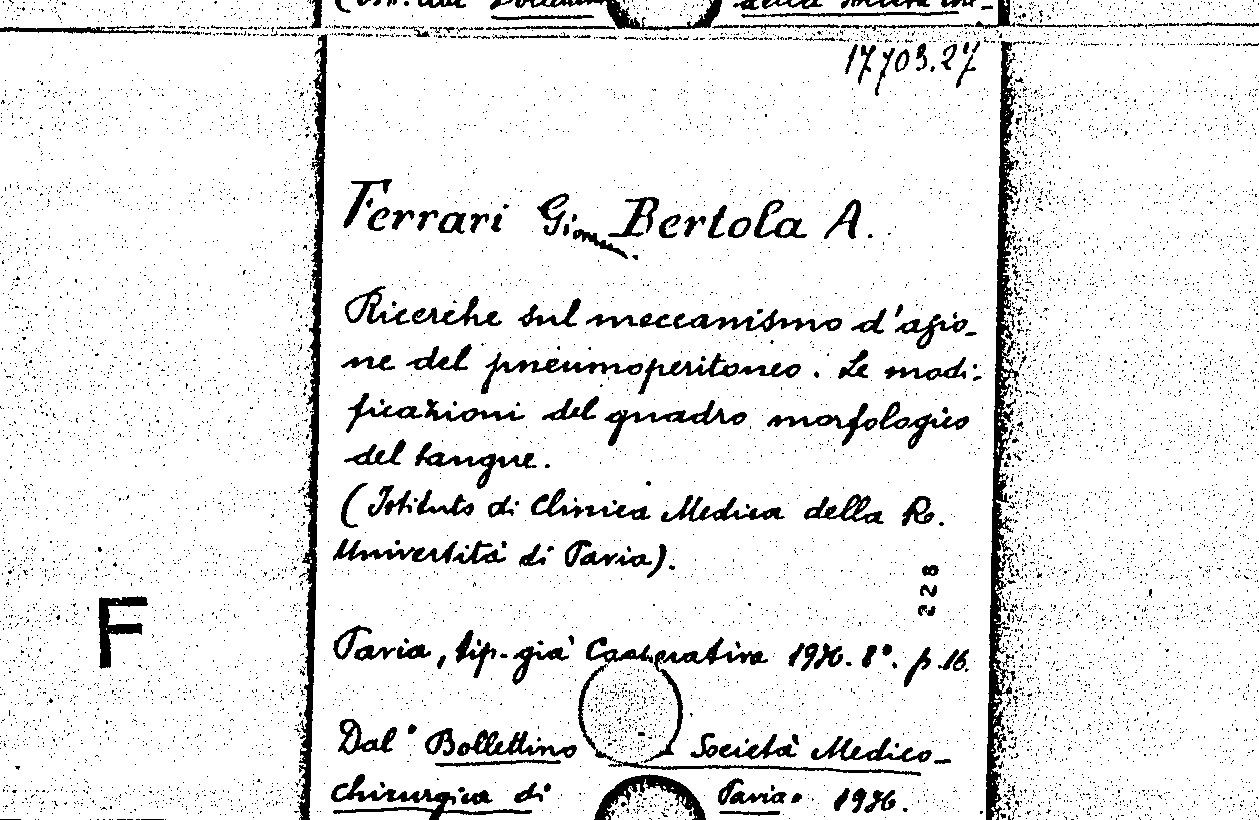 17703.27
Ferrari G. Bertola A.
Ricerche sul meccanismo d'azio-
ne del pneumoperitoneo. Le modi-
ficazioni del quadro morfologico
del sangue.
(Istituto di Clinica Medica della R.
Università di Pavia).
228
F
Pavia, tip. già Cooperativa 1936. 8°. p. 16.
Dal "Bollettino Società Medico-
chirurgica di Pavia" 1936.